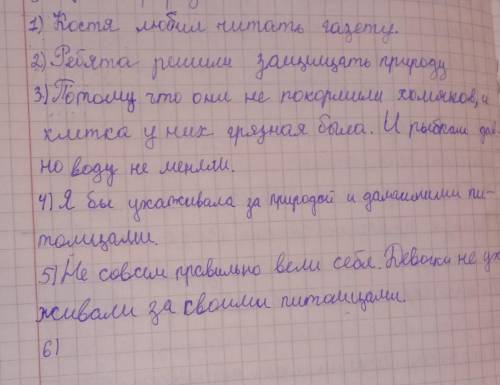 1) Костя любил читать газету.
2) Ребята решили защищать природу
3) Потому что они не покормили хомяков, и
клетка у них грязная была. И рыбкам дав-
но воду не меняли.
4) Я бы ухаживала за природой и домашними пи-
томицами.
5) Не совсем правильно вели себя. Девочки не уха
живали за своими питомицами.
6)